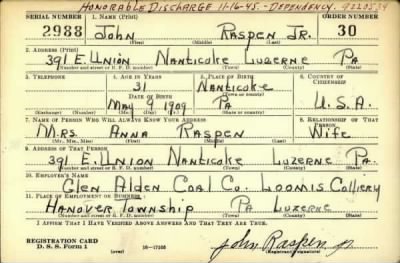 HONORABLE DISCHARGE 11-16-45. - DEPENDENCY.
SERIAL NUMBER 1. NAME (Print) ORDER NUMBER
2988 JOHN RASPEN JR. 30
(First) (Middle) (Last)
2. ADDRESS (Print)
391 E. UNION NANTICOKE LUZERNE PA
(Number and street or R. F. D. number) (Town) (County) (State)
3. TELEPHONE 4. AGE IN YEARS 5. PLACE OF BIRTH 6. COUNTRY OF CITIZENSHIP
31 NANTICOKE
DATE OF BIRTH (Town or county)
MAY 9 1909 PA U.S.A.
(Exchange) (Number) (Mo.) (Day) (Yr.) (State or country)
7. NAME OF PERSON WHO WILL ALWAYS KNOW YOUR ADDRESS 8. RELATIONSHIP OF THAT PERSON
MRS. ANNA RASPEN WIFE
(Mr., Mrs., Miss) (First) (Middle) (Last)
9. ADDRESS OF THAT PERSON
391 E. UNION NANTICOKE LUZERNE PA.
(Number and street or R. F. D. number) (Town) (County) (State)
10. EMPLOYER'S NAME
GLEN ALDEN COAL CO. LOOMIS COLLIERY
11. PLACE OF EMPLOYMENT OR BUSINESS
HANOVER TOWNSHIP PA LUZERNE
(Number and street or R. F. D. number) (Town) (County) (State)
I AFFIRM THAT I HAVE VERIFIED ABOVE ANSWERS AND THAT THEY ARE TRUE.
REGISTRATION CARD
D. S. S. Form 1 (over) 16-17105 John Raspen Jr.
(Registrant's signature)